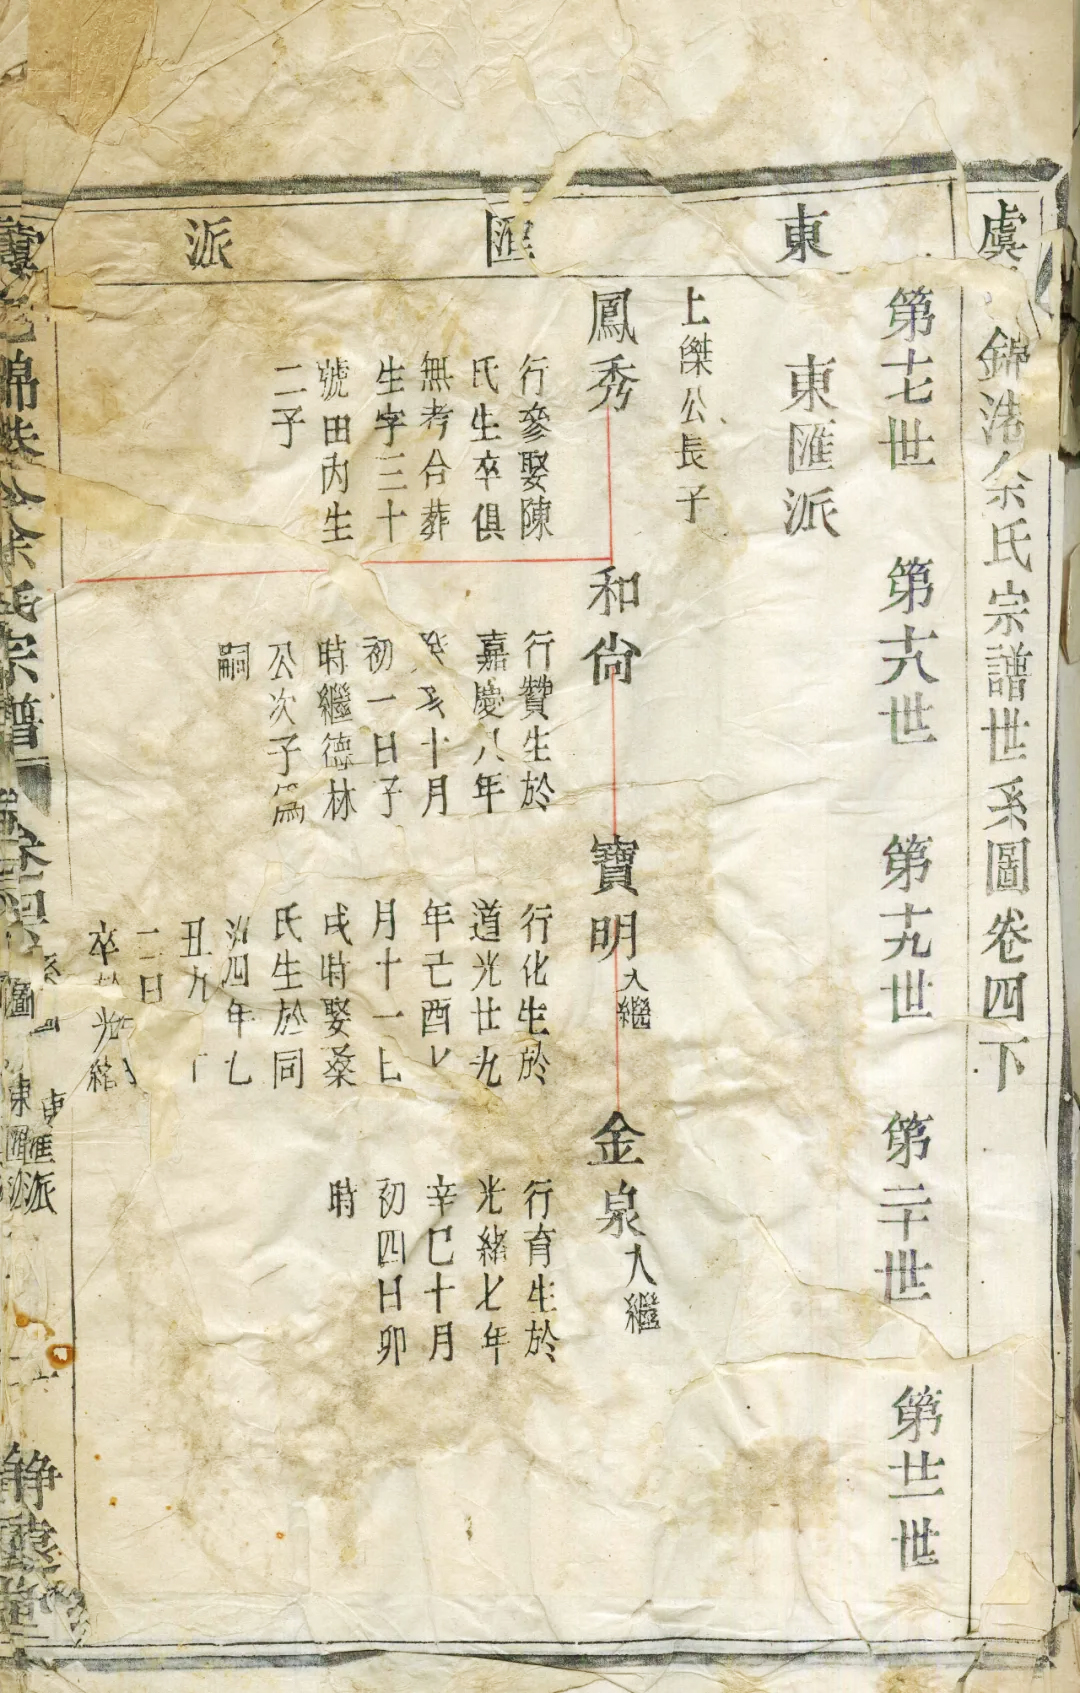 虞
錦港余氏宗譜世系圖卷四下
東匯派
第十七世
第十八世
第十九世
第二十世
第廿一世
東匯派
上傑公長子
鳳秀
行參娶陳
氏生卒俱
無考合葬
生字三十
號田內生
二子
和尙
行贊生於
嘉慶八年
亥十月
初一日子
時繼德林
公次子為
嗣
寶明
入繼
行化生於
道光廿九
年己酉
月十一日
戌時娶桑
氏生於同
四年乙
丑九
二日
卒於光緒
金泉
入繼
行育生於
光緒七年
辛巳十月
初四日卯
時
錦港余氏宗譜
卷四
東匯派